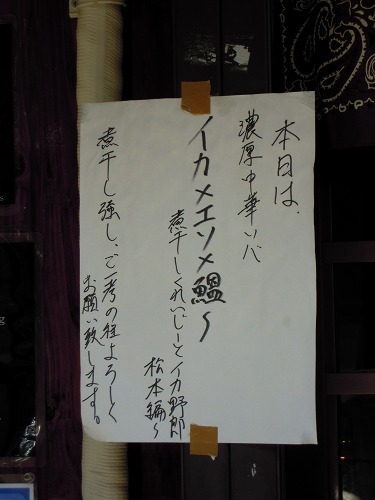 本日は、
濃厚中華ソバ
イカ×エソ×鰮〜
煮干しくれいじーとイカ野郎
松本編〜
煮干し強し、ご一考の程よろしく
お願い致します。